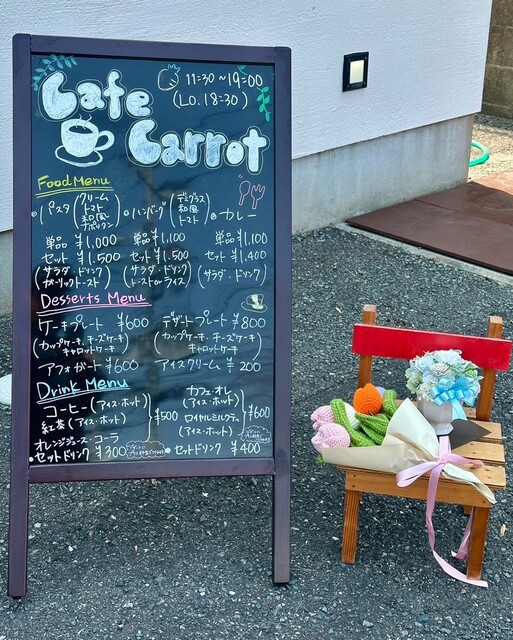 Cafe
Carrot
11:30~19:00
(L.O.18:30)
Food Menu
パスタ(クリーム トマト 和風 ナポリタン)
ハンバーグ(デミグラス 和風 トマト)
カレー
単品 ¥1,000 単品 ¥1,100 単品 ¥1,100
セット ¥1,500 セット ¥1,500 セット ¥1,400
(サラダ・ドリンク ガーリックトースト) (サラダ・ドリンク トーストorライス) (サラダ・ドリンク)
Desserts Menu
ケーキプレート ¥600 デザートプレート ¥800
(カップケーキ、チーズケーキ キャロットケーキ) (カップケーキ・チーズケーキ キャロットケーキ)
アフォガート ¥600 アイスクリーム ¥200
Drink Menu
コーヒー(アイス・ホット)
紅茶(アイス・ホット)
オレンジジュース・コーラ
¥500
セットドリンク ¥300
カフェ・オレ
(アイス・ホット)
ロイヤルミルクティー
(アイス・ホット)
¥600
セットドリンク ¥400